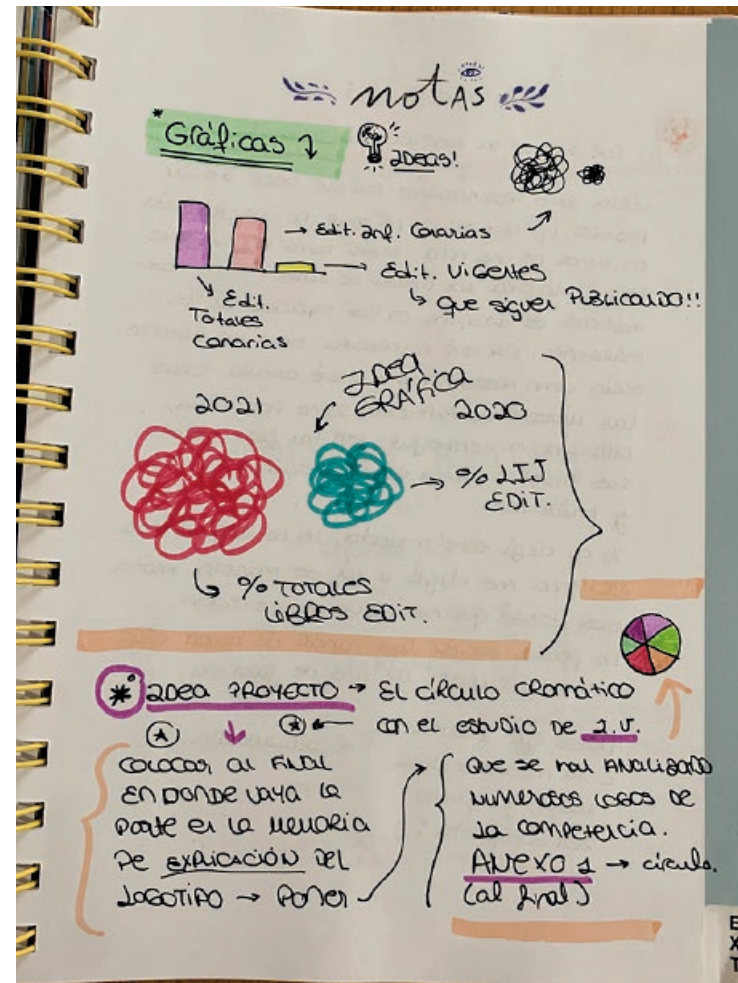 notas
* Gráficas
IDEAS!
→ Edit. Inf. Canarias
→ Edit. Vigentes
↳ que siguen PUBLICANDO!!
↳ Edit.
Totales
Canarias
IDEA
GRÁFICA
2021
2020
→ % LIJ
EDIT.
↳ % TOTALES
LIBROS EDIT.
* IDEA PROYECTO → El círculo cromático
con el estudio de I.V.
COLOCAR al FINAL
EN DONDE VAYA la
parte en la MEMORIA
DE EXPLICACIÓN DEL
LOGOTIPO → PONER
QUE SE han ANALIZADO
NUMEROSOS LOGOS DE
la competencia.
ANEXO 1 → círculo.
(al final)
E
X
T